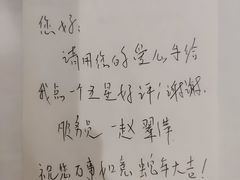 您好:
请用您的爱心手给
我点一个五星好评,谢谢.
服务员 赵翠萍
祝您万事如意 蛇年大吉!